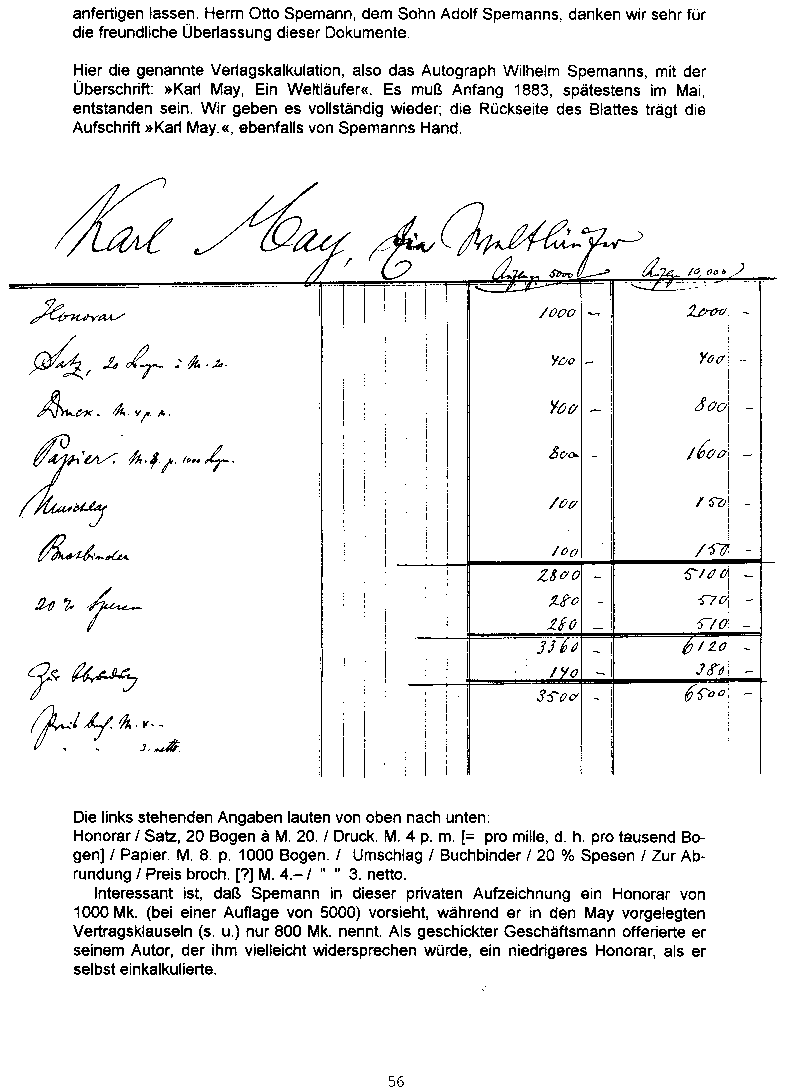 anfertigen lassen. Herrn Otto Spemann, dem Sohn Adolf Spemanns, danken wir sehr für
die freundliche Überlassung dieser Dokumente.
Hier die genannte Verlagskalkulation, also das Autograph Wilhelm Spemanns, mit der
Überschrift: »Karl May, Ein Weltläufer«. Es muß Anfang 1883, spätestens im Mai,
entstanden sein. Wir geben es vollständig wieder; die Rückseite des Blattes trägt die
Aufschrift »Karl May.«, ebenfalls von Spemanns Hand.
Karl May, Ein Weltläufer
Auflage 5000 Aufl. 10,000
Honorar 1000 – 2000 –
Satz, 20 Bogen à M. 20. 400 – 400 –
Druck. M. 4 p. m. 400 – 800 –
Papier. M. 8. p. 1000 Bogen. 800 – 1600 –
Umschlag 100 150 –
Buchbinder 100 150 –
2800 – 5100 –
20 % Spesen 280 – 510 –
280 – 510 –
3360 – 6120 –
Zur Abrundung 140 – 380 –
3500 – 6500 –
Preis broch. M. 4.–
" " 3. netto.
Die links stehenden Angaben lauten von oben nach unten:
Honorar / Satz, 20 Bogen à M. 20. / Druck. M. 4 p. m. [= pro mille, d. h. pro tausend Bo-
gen] / Papier. M. 8. p. 1000 Bogen. / Umschlag / Buchbinder / 20 % Spesen / Zur Ab-
rundung / Preis broch. [?] M. 4.– / " " 3. netto.
Interessant ist, daß Spemann in dieser privaten Aufzeichnung ein Honorar von
1000 Mk. (bei einer Auflage von 5000) vorsieht, während er in den May vorgelegten
Vertragsklauseln (s. u.) nur 800 Mk. nennt. Als geschickter Geschäftsmann offerierte er
seinem Autor, der ihm vielleicht widersprechen würde, ein niedrigeres Honorar, als er
selbst einkalkulierte.
56